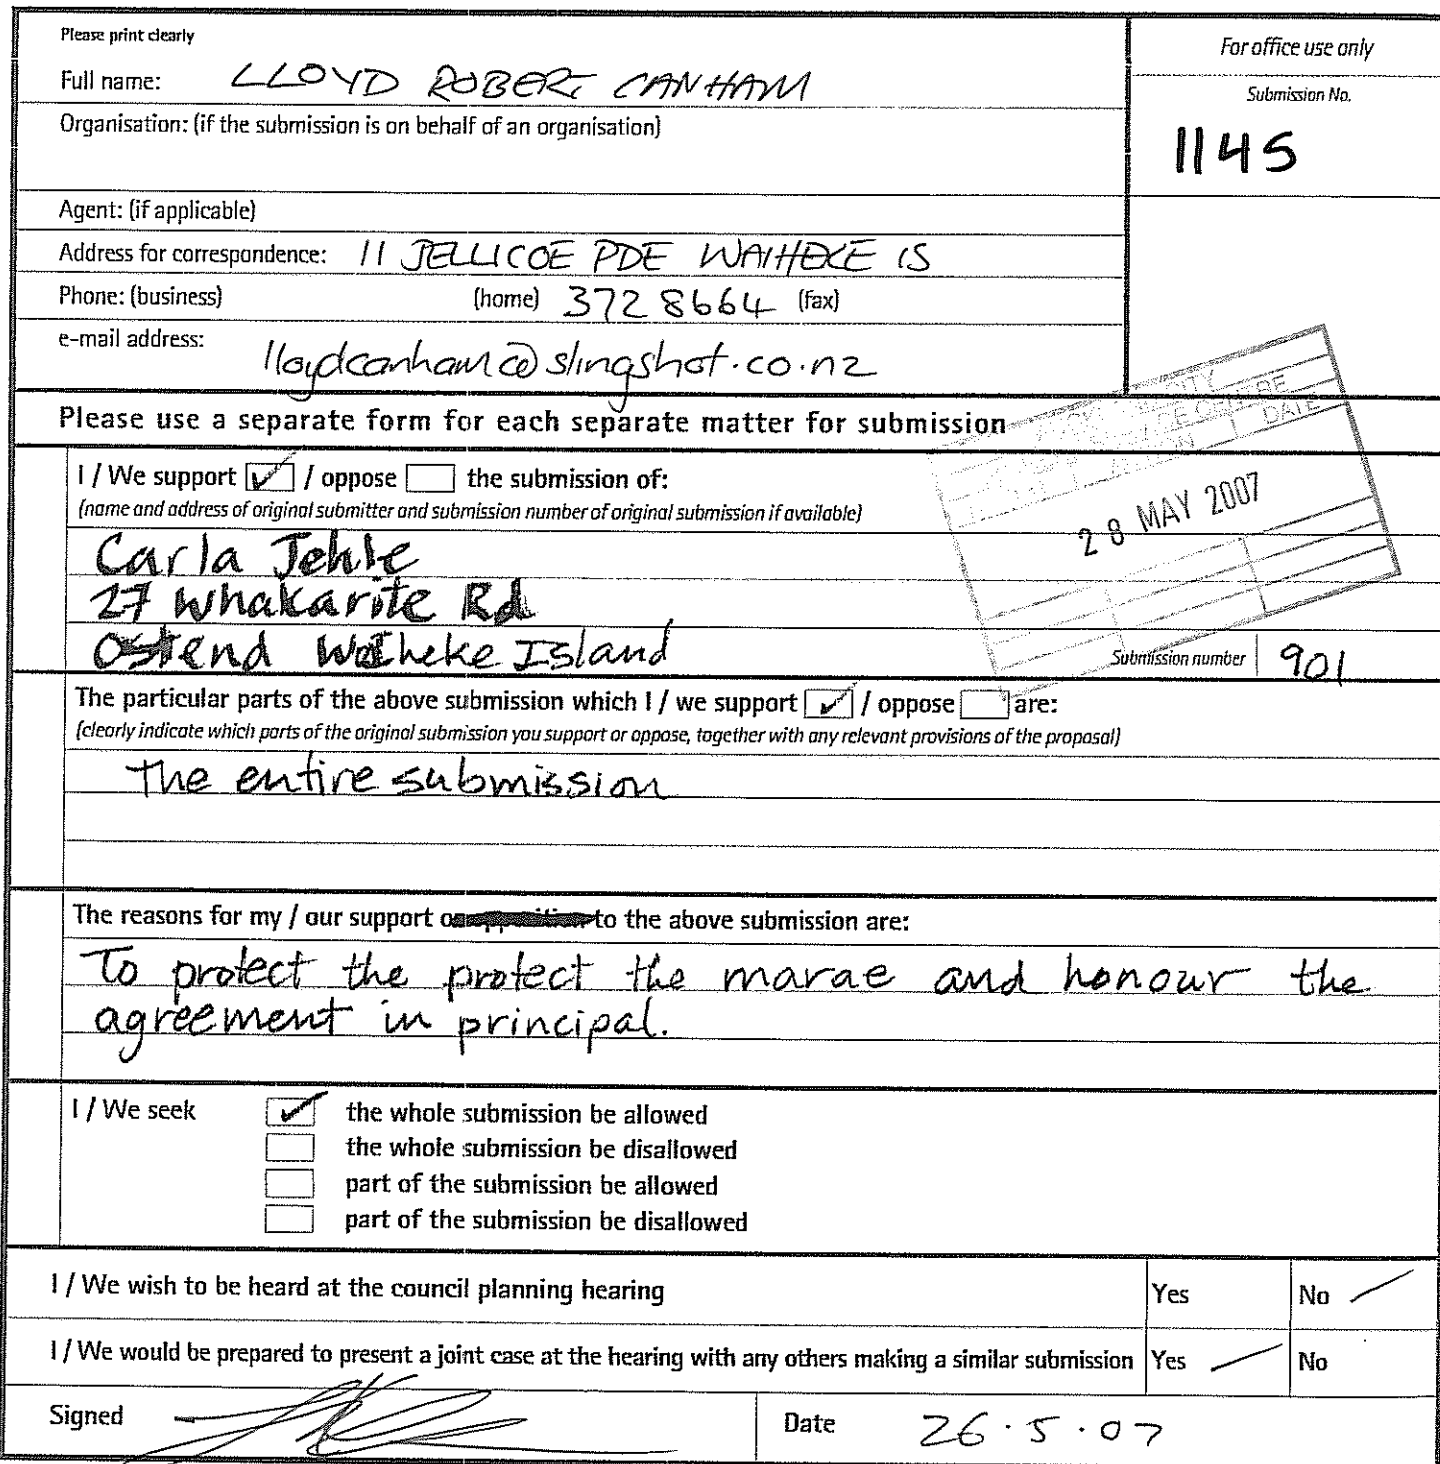 Please print clearly
Full name: LLOYD ROBERT CANHAM
For office use only
Submission No.
1145
Organisation: (if the submission is on behalf of an organisation)
Agent: (if applicable)
Address for correspondence: 11 JELLICOE PDE WAIHEKE IS
Phone: (business) (home) 372 8664 (fax)
e-mail address: lloydcanham@slingshot.co.nz
Please use a separate form for each separate matter for submission
DATE
28 MAY 2007
I / We support ✓ / oppose the submission of:
(name and address of original submitter and submission number of original submission if available)
Carla Jehle
27 Whakarite Rd
Ostend Waiheke Island
Submission number 901
The particular parts of the above submission which I / we support ✓ / oppose are:
(clearly indicate which parts of the original submission you support or oppose, together with any relevant provisions of the proposal)
The entire submission
The reasons for my / our support to the above submission are:
To protect the protect the marae and honour the
agreement in principal.
I / We seek ✓ the whole submission be allowed
the whole submission be disallowed
part of the submission be allowed
part of the submission be disallowed
I / We wish to be heard at the council planning hearing Yes No ✓
I / We would be prepared to present a joint case at the hearing with any others making a similar submission Yes ✓ No
Signed Date 26.5.07